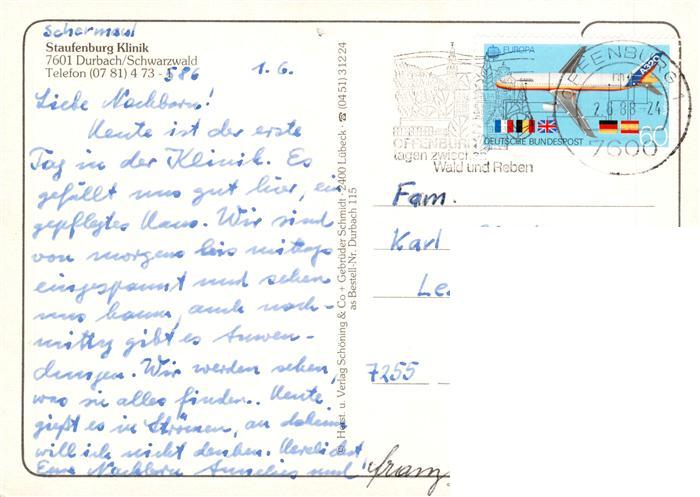 Schermaul
Staufenburg Klinik
7601 Durbach/Schwarzwald
Telefon (07 81) 4 73 - 586
1.6.
Liebe Nachbarn!
Heute ist der erste
Tag in der Klinik. Es
gefällt uns gut hier, ein
gepflegtes Haus. Wir sind
von morgens bis mittags
eingespannt und sehen
uns kaum, auch nach-
mittag gibt es Anwen-
dungen. Wir werden sehen,
was sie alles finden. Heute
gießt es in Strömen, an daheim
will ich nicht denken. Herzlichst
Eure Nachbarn Annelies und Franz
Horst u. Verlag Schöning & Co + Gebrüder Schmidt · 2400 Lübeck · ☎ (04 51) 3 12 24
as Bestell-Nr. Durbach 115
EUROPA
A320
60
DEUTSCHE BUNDESPOST
OFFENBURG
tagen zwischen
Wald und Reben
OFFENBURG 1
2.6.88-24
7600
Fam.
Karl
Le
7255